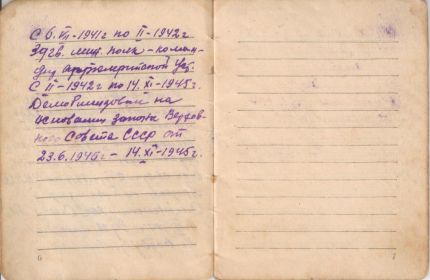 С 6. VII-1941г по II-1942г
39 гв. мин. полк - коман-
дир артиллерийской
С II-1942г по 14. XI-1945г.
Демобилизован на
основании закона Верхов-
ного Совета СССР от
23.6.1945г - 14. XI-1945г.
6
7